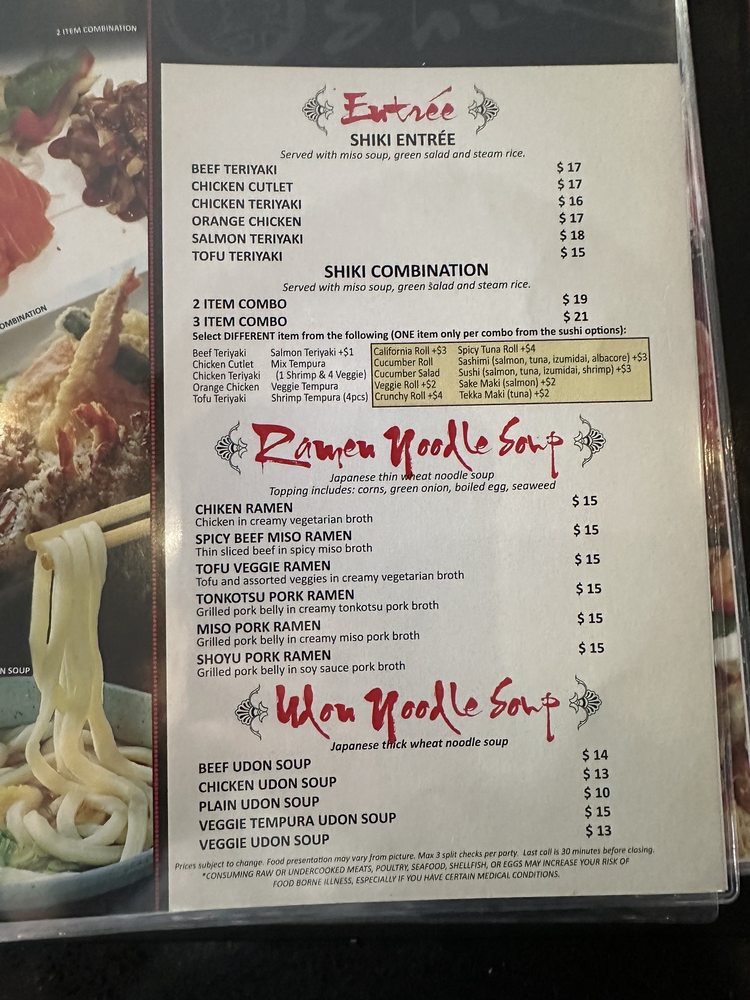 2 ITEM COMBINATION
Entrée
SHIKI ENTRÉE
Served with miso soup, green salad and steam rice.
BEEF TERIYAKI $ 17
CHICKEN CUTLET $ 17
CHICKEN TERIYAKI $ 16
ORANGE CHICKEN $ 17
SALMON TERIYAKI $ 18
TOFU TERIYAKI $ 15
SHIKI COMBINATION
Served with miso soup, green salad and steam rice.
2 ITEM COMBO $ 19
3 ITEM COMBO $ 21
Select DIFFERENT item from the following (ONE item only per combo from the sushi options):
Beef Teriyaki Salmon Teriyaki +$1 California Roll +$3 Spicy Tuna Roll +$4
Chicken Cutlet Mix Tempura Cucumber Roll Sashimi (salmon, tuna, izumidai, albacore) +$3
Chicken Teriyaki (1 Shrimp & 4 Veggie) Cucumber Salad Sushi (salmon, tuna, izumidai, shrimp) +$3
Orange Chicken Veggie Tempura Veggie Roll +$2 Sake Maki (salmon) +$2
Tofu Teriyaki Shrimp Tempura (4pcs) Crunchy Roll +$4 Tekka Maki (tuna) +$2
OMBINATION
Ramen Noodle Soup
Japanese thin wheat noodle soup
Topping includes: corns, green onion, boiled egg, seaweed
CHIKEN RAMEN $ 15
Chicken in creamy vegetarian broth
SPICY BEEF MISO RAMEN $ 15
Thin sliced beef in spicy miso broth
TOFU VEGGIE RAMEN $ 15
Tofu and assorted veggies in creamy vegetarian broth
TONKOTSU PORK RAMEN $ 15
Grilled pork belly in creamy tonkotsu pork broth
MISO PORK RAMEN $ 15
Grilled pork belly in creamy miso pork broth
SHOYU PORK RAMEN $ 15
Grilled pork belly in soy sauce pork broth
N SOUP
Udon Noodle Soup
Japanese thick wheat noodle soup
BEEF UDON SOUP $ 14
CHICKEN UDON SOUP $ 13
PLAIN UDON SOUP $ 10
VEGGIE TEMPURA UDON SOUP $ 15
VEGGIE UDON SOUP $ 13
Prices subject to change. Food presentation may vary from picture. Max 3 split checks per party. Last call is 30 minutes before closing.
*CONSUMING RAW OR UNDERCOOKED MEATS, POULTRY, SEAFOOD, SHELLFISH, OR EGGS MAY INCREASE YOUR RISK OF
FOOD BORNE ILLNESS, ESPECIALLY IF YOU HAVE CERTAIN MEDICAL CONDITIONS.